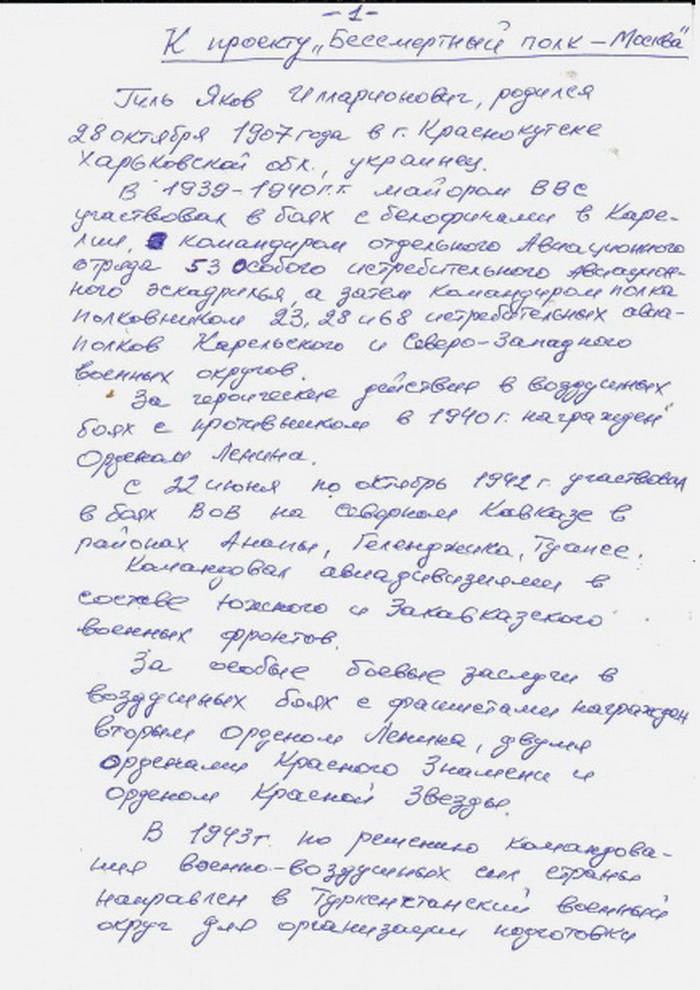 -1-
К проекту „Бессмертный полк – Москва"
Гиль Яков Илларионович, родился
28 октября 1907 года в г. Краснокутске
Харьковской обл., украинец.
В 1939-1940г.г. майором ВВС
участвовал в боях с белофинами в Каре-
лии, командиром отдельного Авиационного
отряда 53 Особого истребительного Авиацион-
ного эскадрилья, а затем командиром полка
полковником 23, 28 и 68 истребительных авиа-
полков Карельского и Северо-Западного
военных округов.
За героические действия в воздушных
боях с противником в 1940г. награжден
Орденом Ленина.
С 22 июня по октябрь 1942 г. участвовал
в боях ВоВ на Северном Кавказе в
районах Анапы, Геленджика, Туапсе.
Командовал авиадивизиями в
составе Южного и Закавказского
военных фронтов.
За особые боевые заслуги в
воздушных боях с фашистами награжден
вторым Орденом Ленина, двумя
Орденами Красного Знамени и
орденом Красной Звезды.
В 1943г. по решению Командова-
ния военно-воздушных сил страны
направлен в Туркенстанский военный
округ для организации подготовки